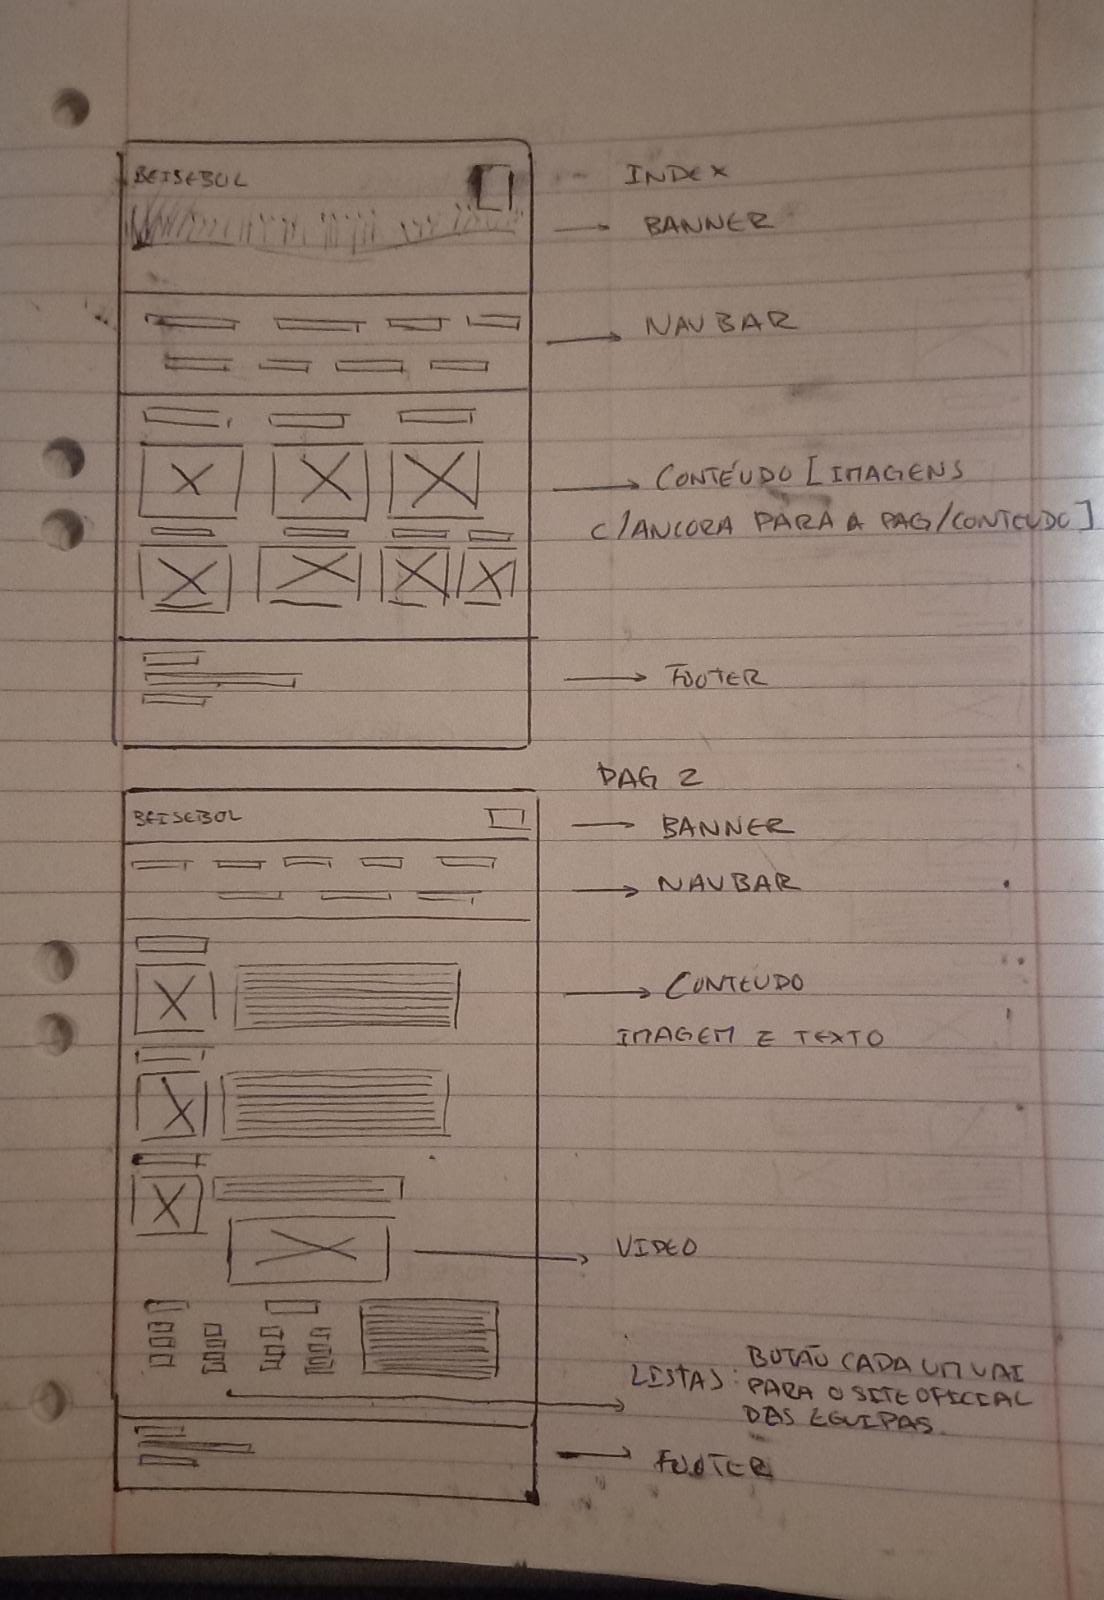 BEISEBOL
INDEX
BANNER
NAVBAR
CONTEÚDO [IMAGENS
C/ANCORA PARA A PAG/CONTEUDO]
FOOTER
PAG 2
BEISEBOL
BANNER
NAVBAR
CONTEUDO
IMAGEM E TEXTO
VIDEO
LISTAS: BOTÃO CADA UM VAI
PARA O SITE OFICIAL
DAS EQUIPAS.
FOOTER